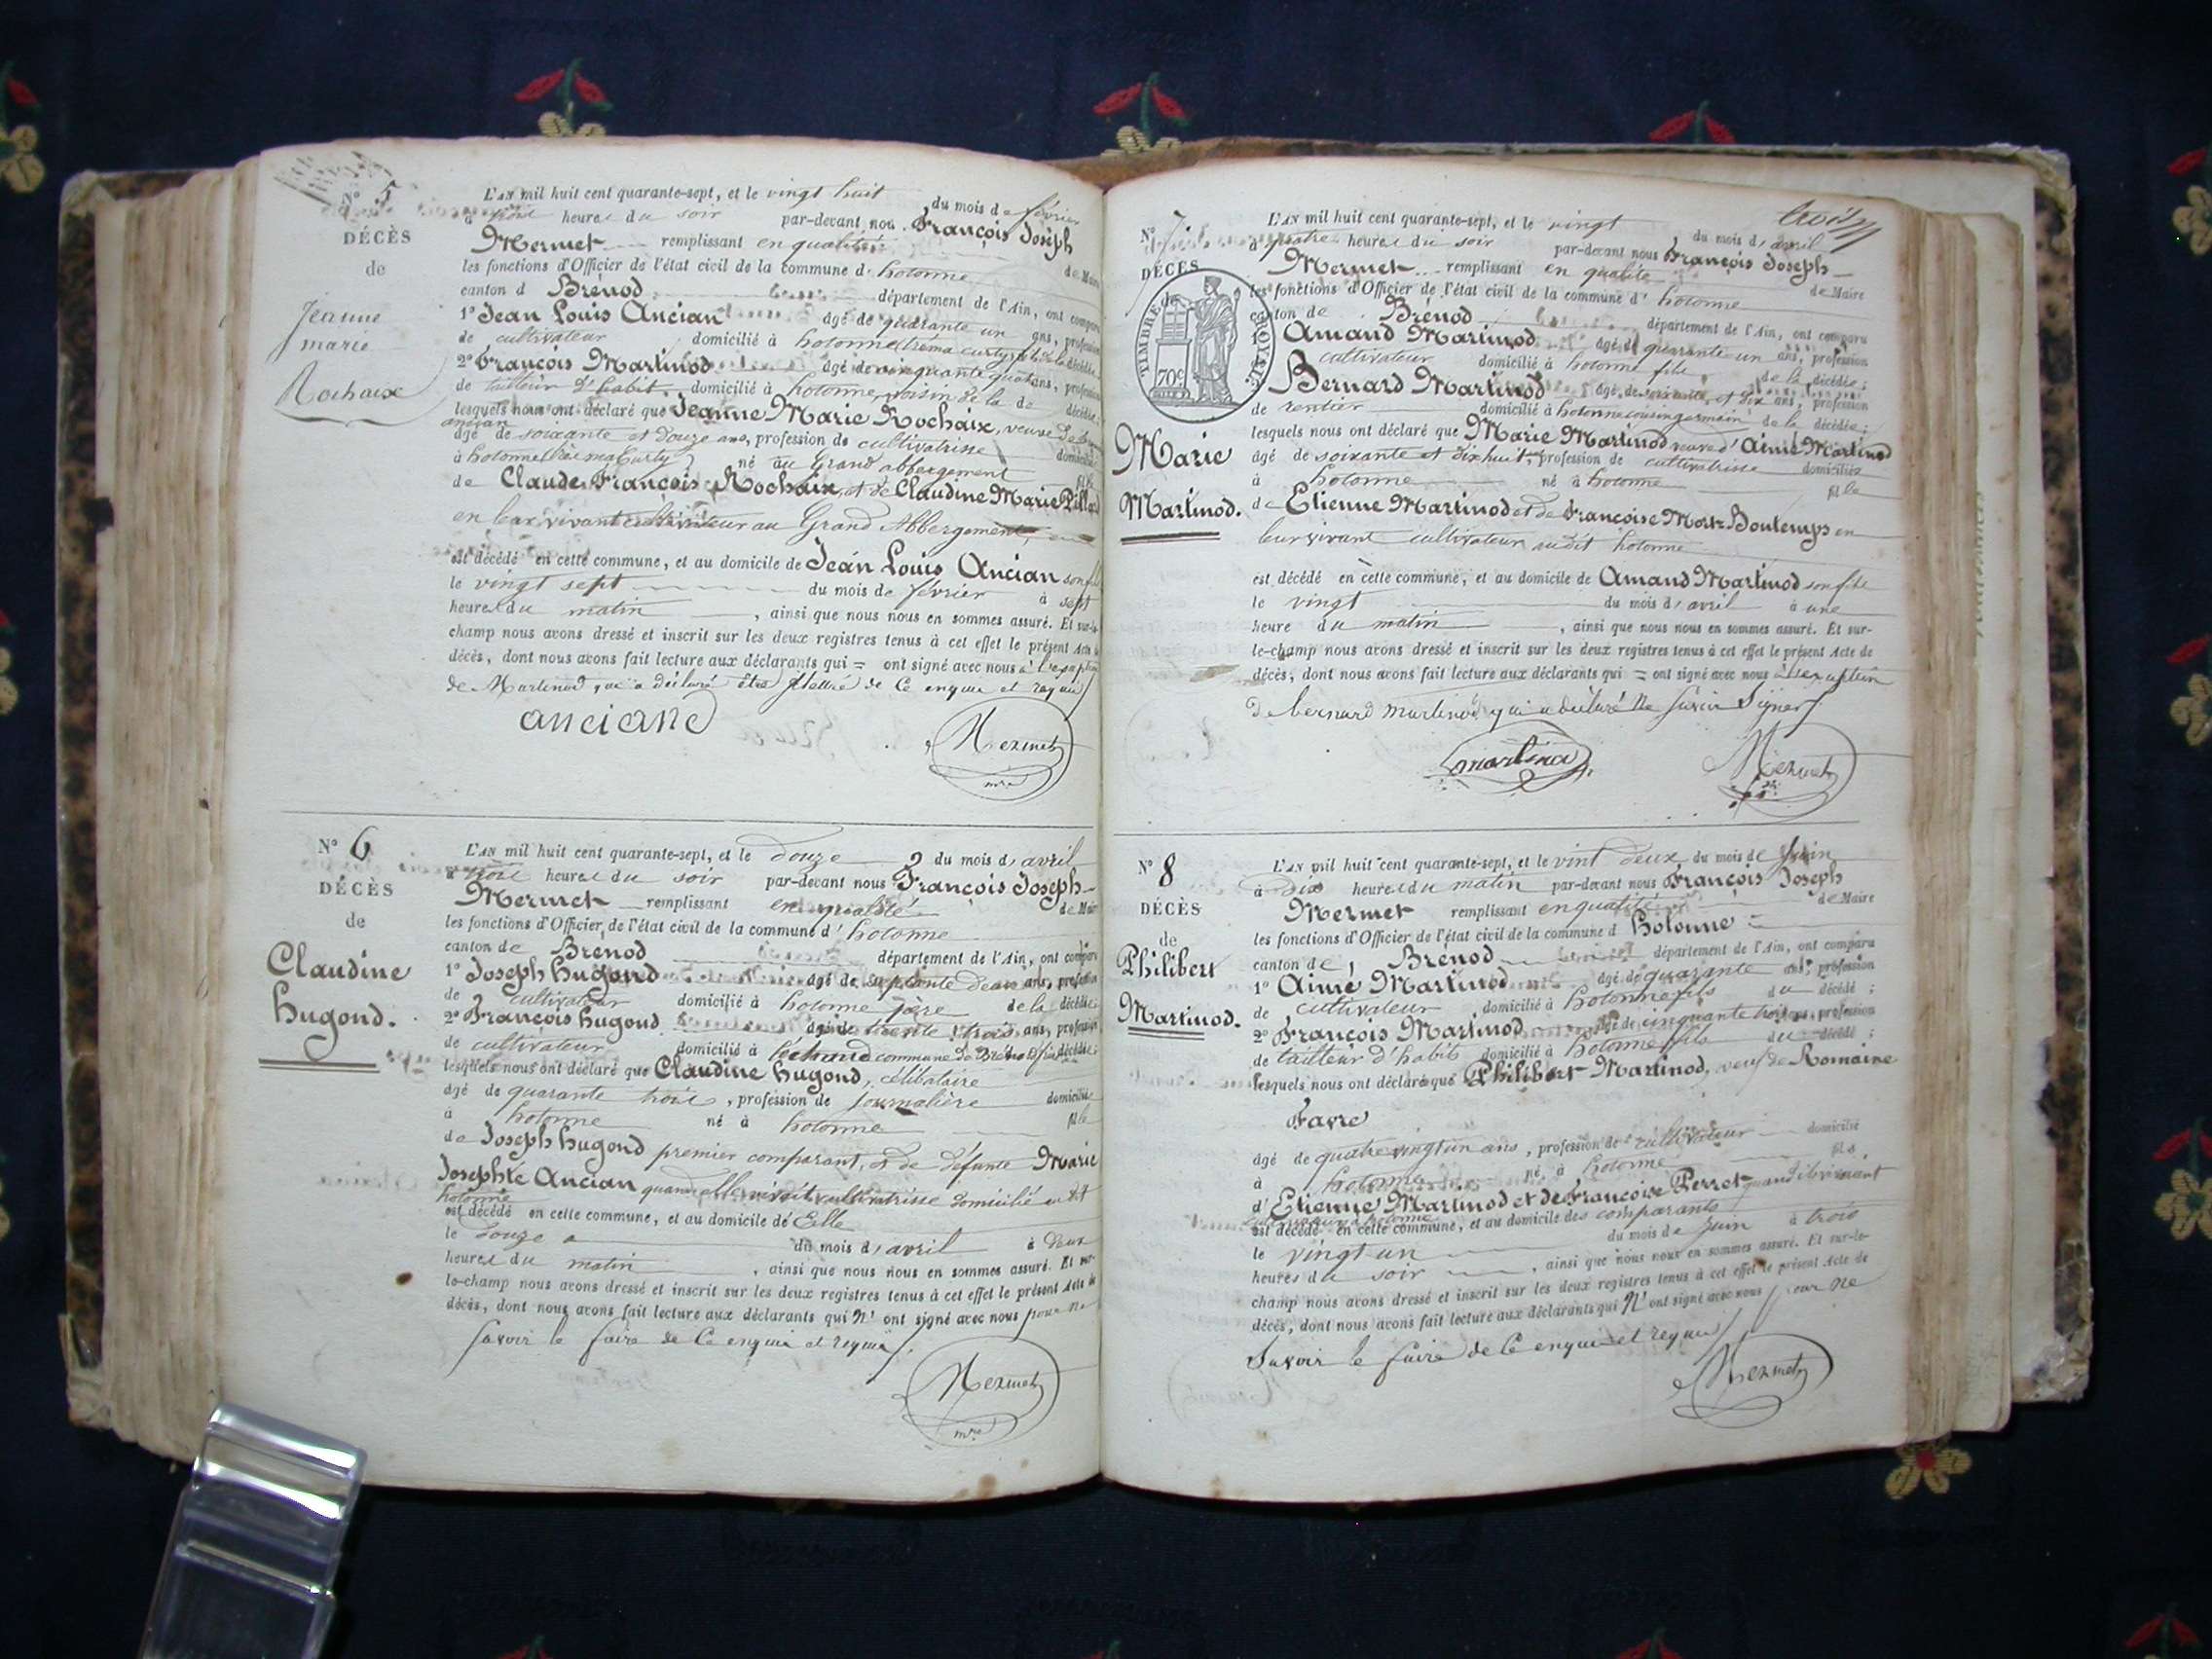 N° 5
DÉCÈS
de
Jeanne
marie
Rochaix
L'AN mil huit cent quarante-sept, et le vingt huit du mois de février
à trois heures du soir par-devant nou François Joseph
Mermet remplissant en qualité de Maire
les fonctions d'Officier de l'état civil de la commune d' hotonne
canton d Brénod département de l'Ain, ont comparu
1° Jean Louis Ancian âgé de quarante un ans, profession
de cultivateur domicilié à hotonne fils de la décédée
2° François Martinod âgé de cinquante quatre ans, profession
de tailleur d'habit domicilié à hotonne, voisin de la de décédée
lesquels nous ont déclaré que Jeanne Marie Rochaix, veuve de
ancian
âgé de soixante et douze ans, profession de cultivatrisse domicilié
à hotonne né au Grand abbergement fille
de Claude François Rochaix, et de Claudine Marie Pillard
en leur vivant cultivateur au Grand Abbergement
est décédé en cette commune, et au domicile de Jean Louis Ancian son fils
le vingt sept du mois de février à sept
heures du matin , ainsi que nous nous en sommes assuré. Et sur-le-
champ nous avons dressé et inscrit sur les deux registres tenus à cet effet le présent Acte de
décès, dont nous avons fait lecture aux déclarants qui = ont signé avec nous à l'exseption
de Martinod qui a déclaré être illettré de ce enquis et requis
anciane
Mermet
mre
N° 6
DÉCÈS
de
Claudine
hugond.
L'AN mil huit cent quarante-sept, et le douze du mois d'avril
à trois heures du soir par-devant nous François Joseph
Mermet remplissant en qualité de Maire
les fonctions d'Officier de l'état civil de la commune d' hotonne
canton de Brénod département de l'Ain, ont comparu
1° Joseph hugond âgé de septante deux ans, profession
de cultivateur domicilié à hotonne père de la décédée
2° François hugond âgé de trente trois ans, profession
de cultivateur domicilié à commune de Brénod décédée
lesquels nous ont déclaré que Claudine hugond, célibataire
âgé de quarante trois, profession de journalière domiciliée
à hotonne né à hotonne fille
de Joseph hugond premier comparant, et de défunte Marie
Josephte Ancian quand elle vivait cultivatrisse domicilié au dit
hotonne
est décédé en cette commune, et au domicile de Elle
le douze du mois d'avril à deux
heures du matin , ainsi que nous nous en sommes assuré. Et sur-
le-champ nous avons dressé et inscrit sur les deux registres tenus à cet effet le présent Acte de
décès, dont nous avons fait lecture aux déclarants qui n' ont signé avec nous pour ne
savoir le faire de ce enquis et requis.
Mermet
mre
trois
N° 7
DÉCÈS
de
TIMBRE ROYAL
70c
Marie
Martinod.
L'AN mil huit cent quarante-sept, et le vingt du mois d'avril
à quatre heures du soir par-devant nous François Joseph
Mermet remplissant en qualité de Maire
les fonctions d'Officier de l'état civil de la commune d' hotonne
canton de Brénod département de l'Ain, ont comparu
Amand Martinod âgé de quarante un ans, profession
cultivateur domicilié à hotonne fils de la décédée;
Bernard Martinod âgé de soixante et dix ans, profession
de rentier domicilié à hotonne cousin germain de la décédée;
lesquels nous ont déclaré que Marie Martinod veuve d'Aimé Martinod
âgé de soixante et dixhuit ans, profession de cultivatrisse domiciliée
à hotonne né à hotonne fille
de Etienne Martinod et de Françoise Marie Boutemps en
leur vivant cultivateur audit hotonne
est décédé en cette commune, et au domicile de Amand Martinod son fils
le vingt du mois d'avril à une
heure du matin , ainsi que nous nous en sommes assuré. Et sur-
le-champ nous avons dressé et inscrit sur les deux registres tenus à cet effet le présent Acte de
décès, dont nous avons fait lecture aux déclarants qui = ont signé avec nous à l'exseption
de bernard martinod qui a déclaré ne savoir signer
martinod
Mermet
N° 8
DÉCÈS
de
Philibert
Martinod.
L'AN mil huit cent quarante-sept, et le vint deux du mois de Juin
à dix heures du matin par-devant nous François Joseph
Mermet remplissant en qualité de Maire
les fonctions d'Officier de l'état civil de la commune d hotonne
canton de Brénod département de l'Ain, ont comparu
1° Aimé Martinod âgé de quarante ans, profession
de cultivateur domicilié à hotonne fils du décédé;
2° François Martinod âgé de cinquante trois ans, profession
de tailleur d'habits domicilié à hotonne fils du décédé;
lesquels nous ont déclaré que Philibert Martinod, veuf de Romaine
Favre
âgé de quatre vingt un ans, profession de cultivateur domicilié
à hotonne né à hotonne fils
d' Etienne Martinod et de Françoise Perret quand ils vivaient
est décédé en cette commune, et au domicile des comparants
le vingt un du mois de juin à trois
heures du soir , ainsi que nous nous en sommes assuré. Et sur-le-
champ nous avons dressé et inscrit sur les deux registres tenus à cet effet le présent Acte de
décès, dont nous avons fait lecture aux déclarants qui n' ont signé avec nous pour ne
savoir le faire de ce enquis et requis
Mermet